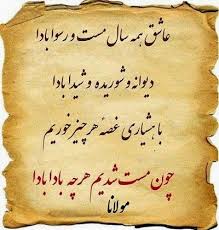 عاشق همه سال مست و رسوا بادا
دیوانه و شوریده و شیدا بادا
با هشیاری غصهٔ هر چیز خوریم
چون مست شدیم هر چه بادا بادا
مولانا